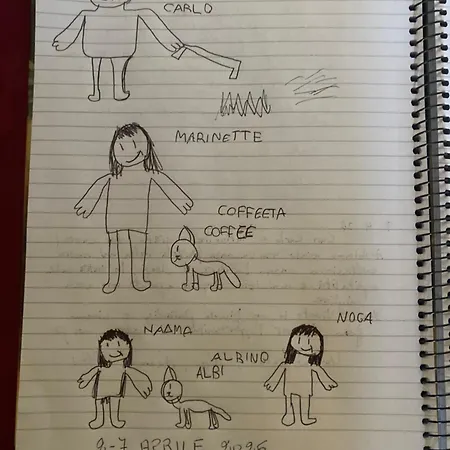 CARLO
MARINETTE
COFFEETA
COFFEE
NOGA
NAAMA
ALBINO
ALBI
2-7 APRILE